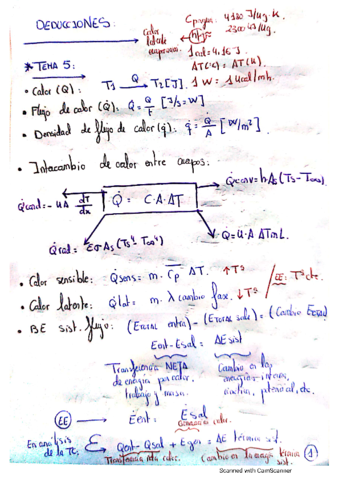 DEDUCCIONES:
Cp agua = 4180 J/kg·K.
Calor latente
* TEMA 5:
ΔT(ºC) = ΔT(K).
• Calor (Q): T1 Q→ T2 [J].
• Flujo de calor (Q̇): Q̇ = Q/t [J/s = W]
• Densidad de flujo de calor (q̇): q̇ = Q̇/A [W/m²]
• Intercambio de calor entre cuerpos:
Q̇conv = hAs(Ts - T∞)
Q̇cond = - kA dT/dx
Q̇ = C·A·ΔT
Q̇rad = εσAs(Ts⁴ - T∞⁴)
Q̇ = U·A ΔTmL.
• Calor sensible: Q̇sens = ṁ · Cp ΔT. ↑Tª
• Calor latente: Q̇lat = ṁ · λ cambio fase. ↓Tª
• BE sist. flujo: (Etotal entra) - (Etotal sale) = (Cambio Etotal)
Eent - Esal = ΔE sist
Transferencia NETA de energía por calor, trabajo y masa.
Cambio en las energías internas, cinéticas, potencial, etc.
EE → Eent = Esal
En análisis de la TC: Qent - Qsal + Egen = ΔE térmica sist.
Transferencia neta calor.
Cambio en la energía térmica sist.
1
Scanned with CamScanner